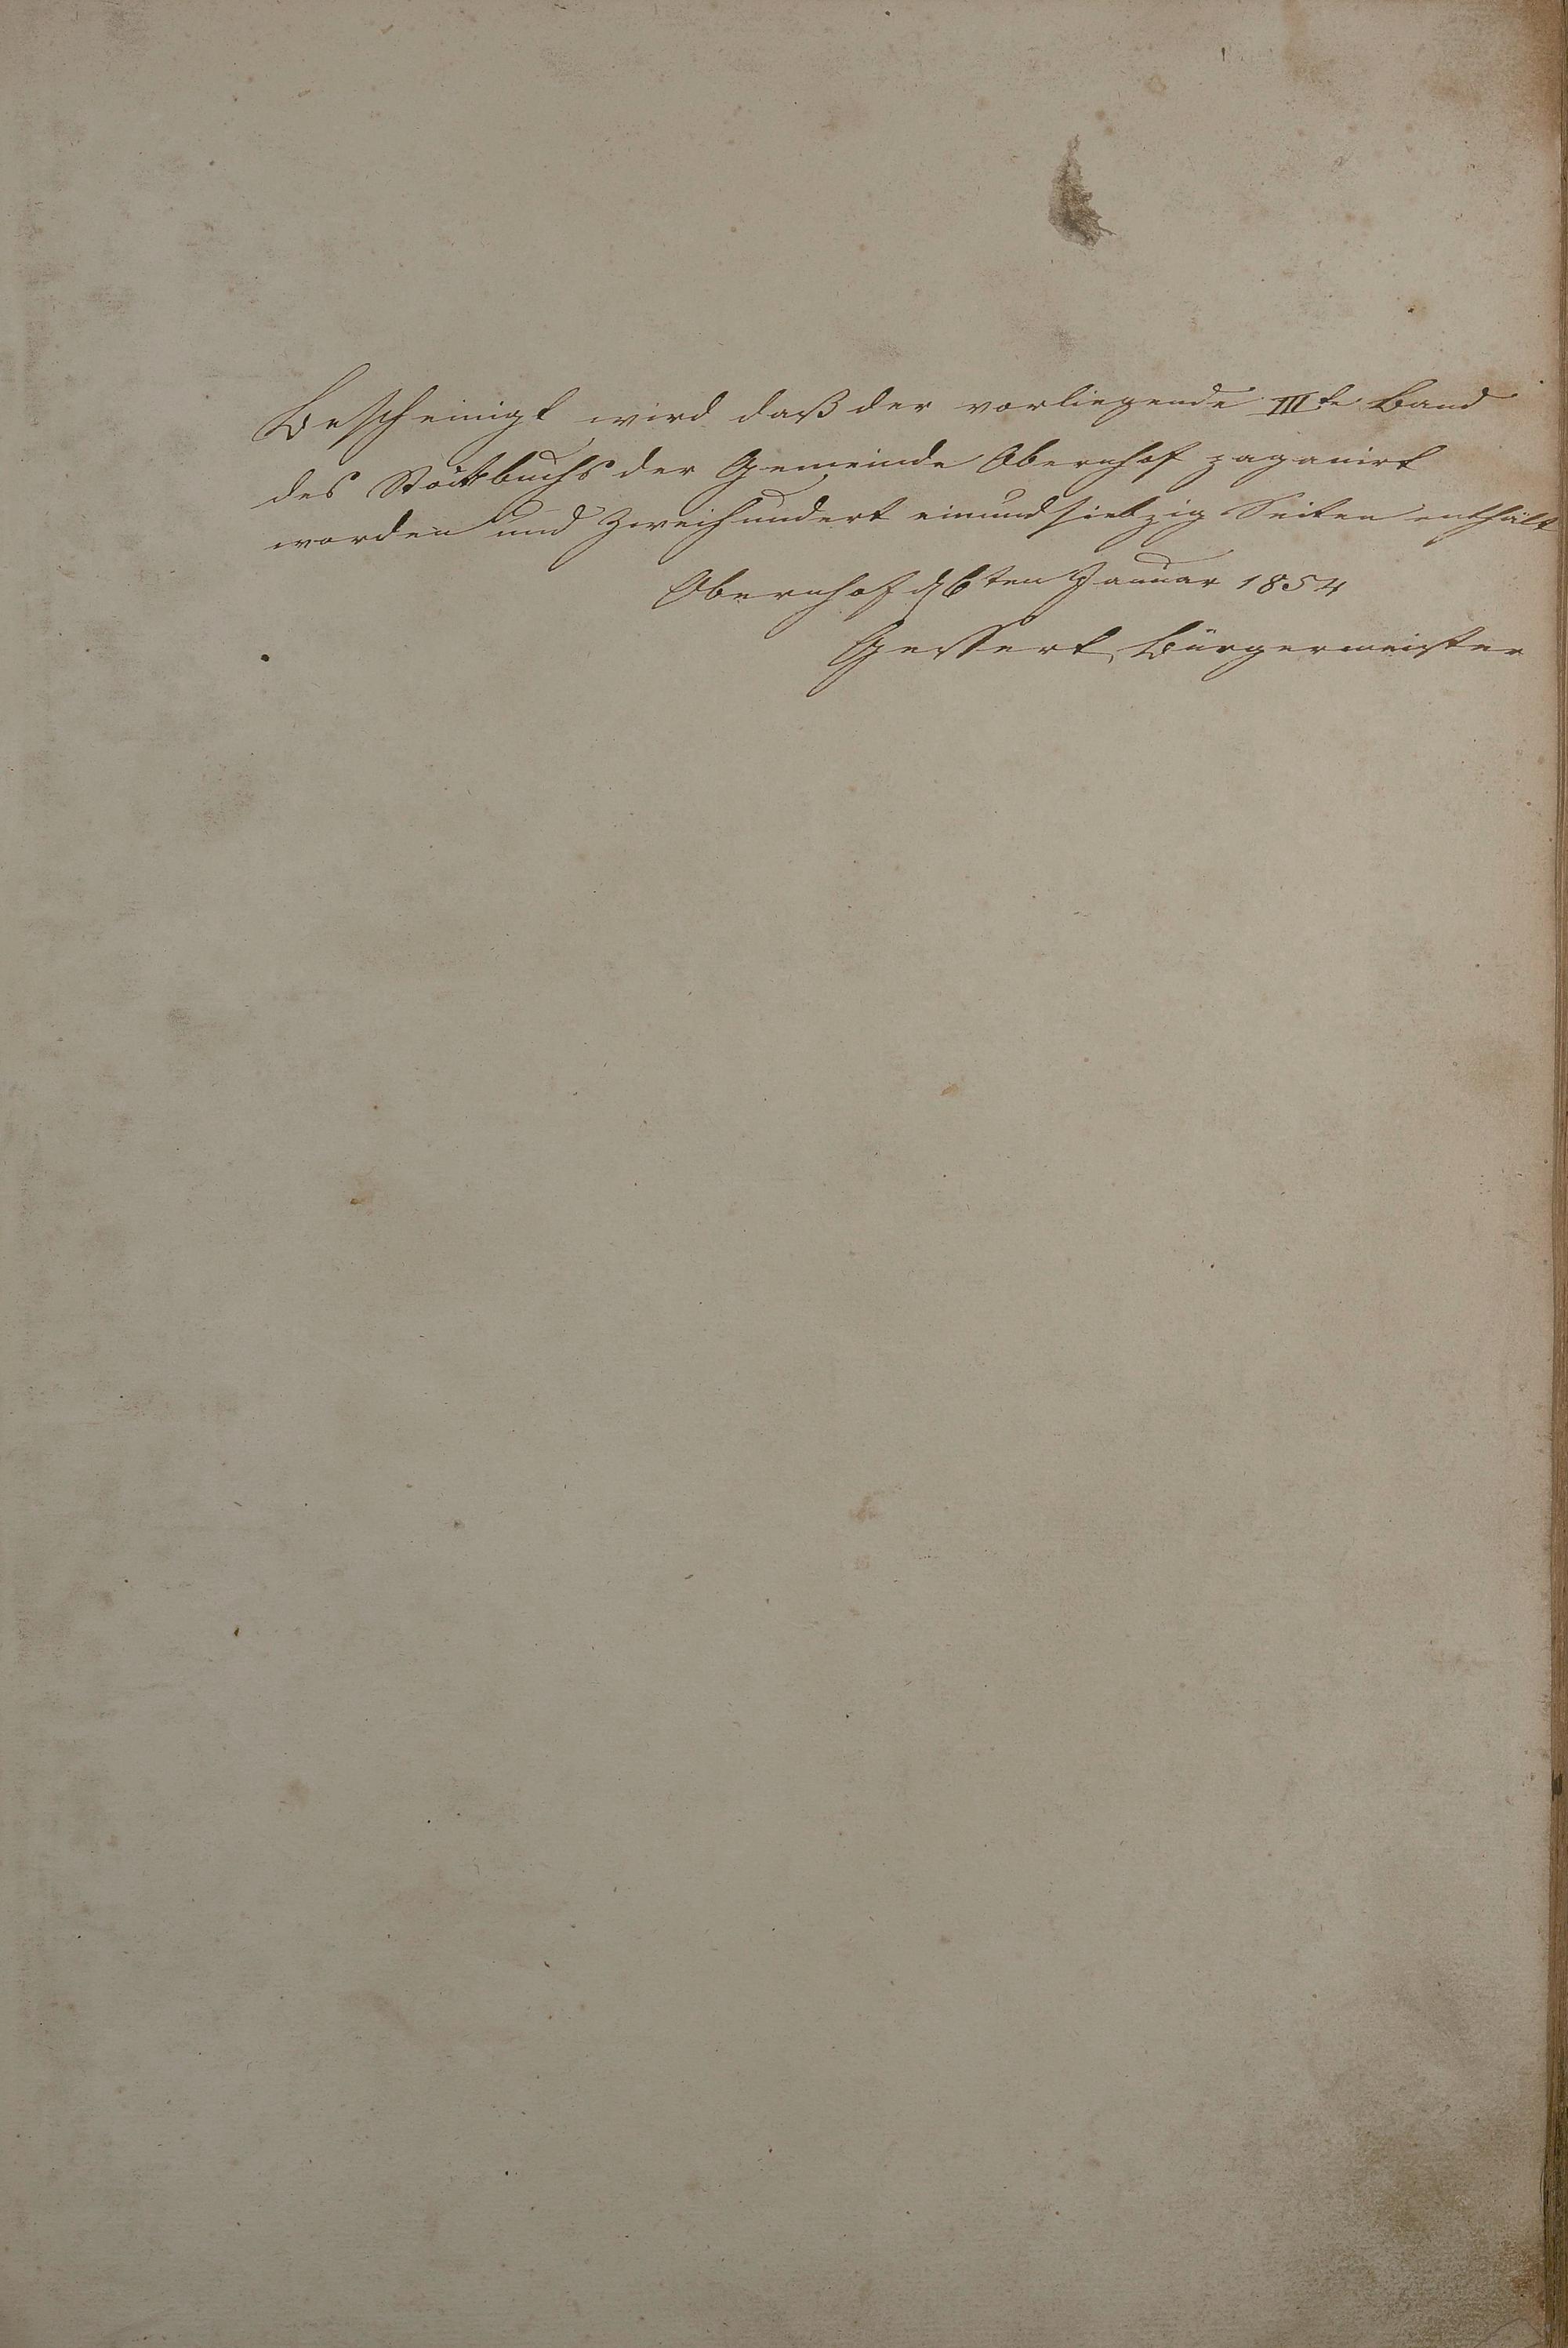 Bescheinigt wird daß der vorliegende IIIte Band
des Stockbuchs der Gemeinde Obernhof paganirt
worden und Zweihundert einundsiebzig Seiten enthält
Obernhof d 6ten Januar 1854
Gessert, Bürgermeister